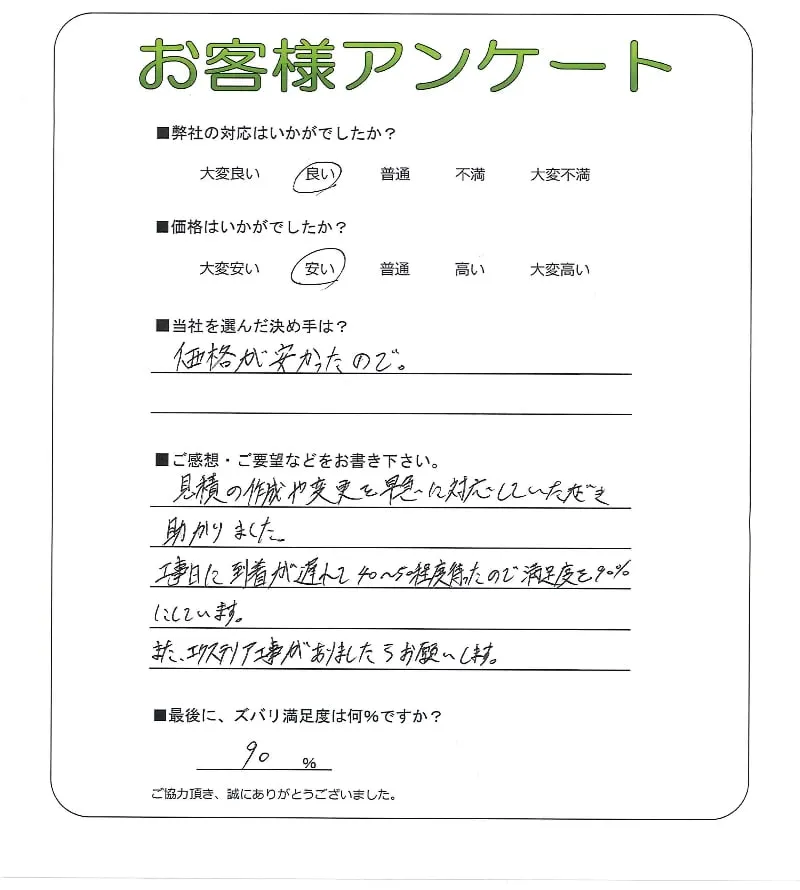 お客様アンケート
■弊社の対応はいかがでしたか？
大変良い 良い 普通 不満 大変不満
■価格はいかがでしたか？
大変安い 安い 普通 高い 大変高い
■当社を選んだ決め手は？
価格が安かったので。
■ご感想・ご要望などをお書き下さい。
見積の作成や変更を早急に対応していただき
助かりました。
工事日に到着が遅れて40〜50程度待ったので満足度を90%
にしています。
また、エクステリア工事がありましたらお願いします。
■最後に、ズバリ満足度は何％ですか？
90 %
ご協力頂き、誠にありがとうございました。